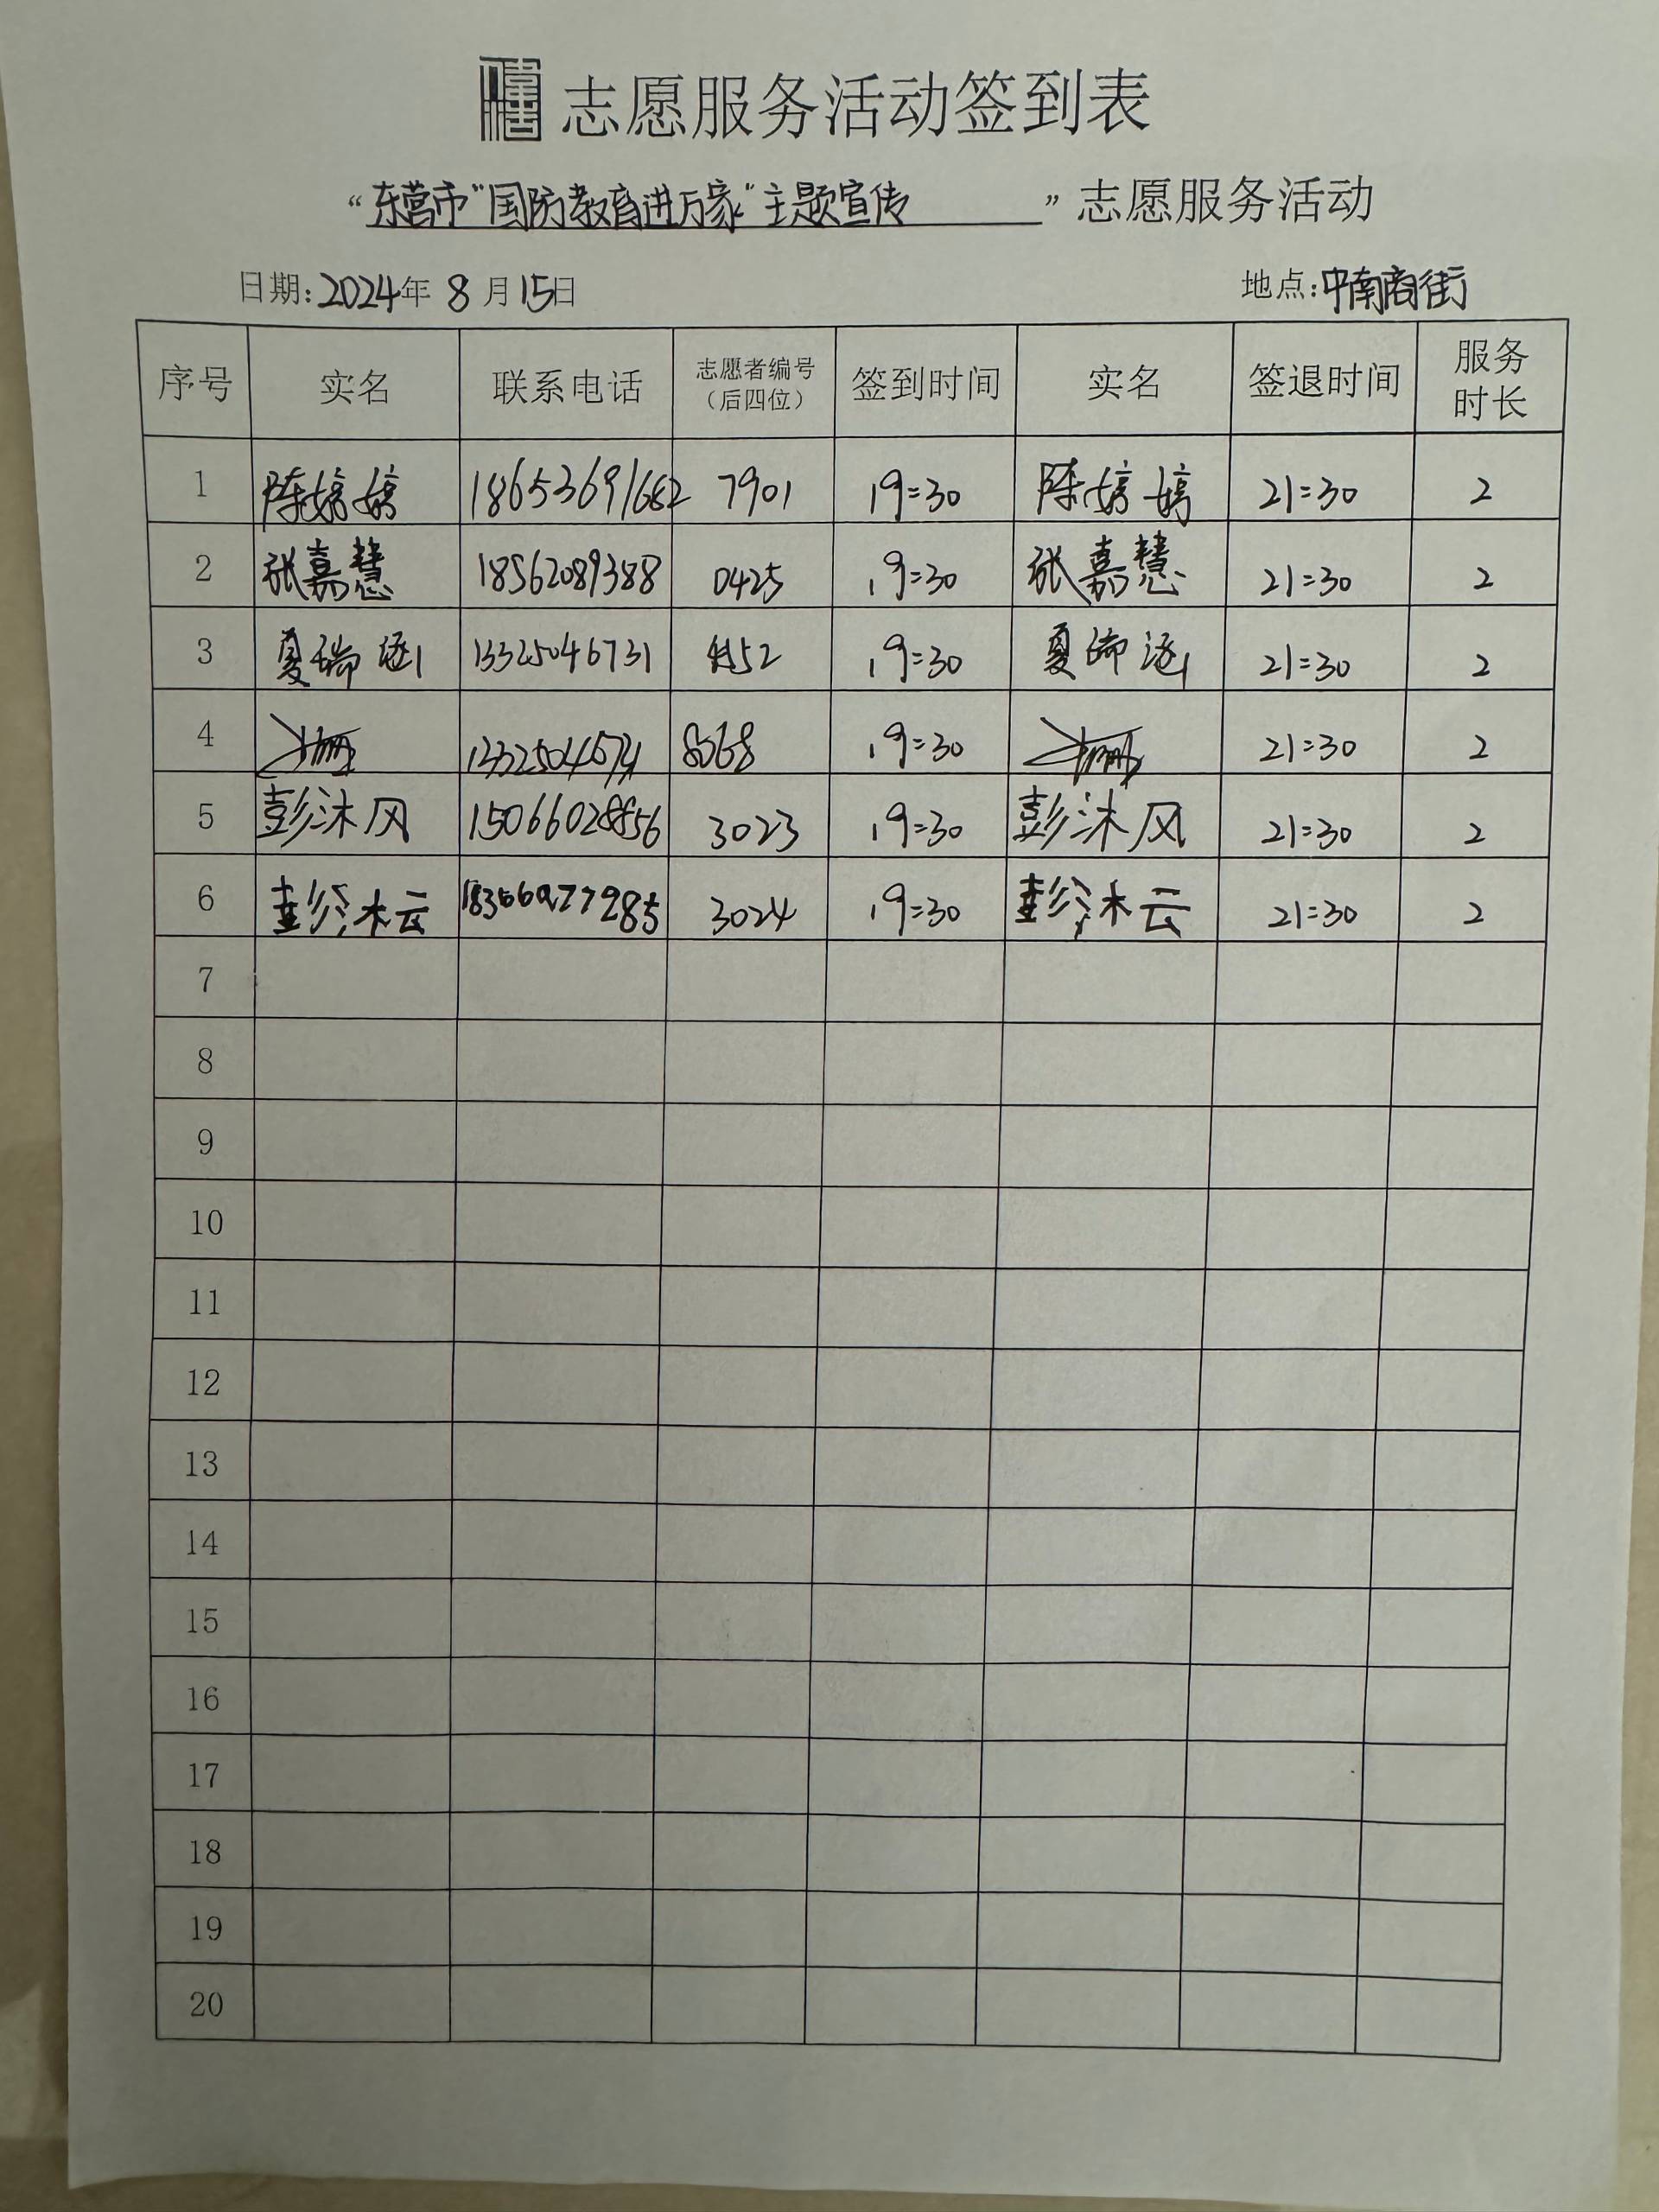 志愿服务活动签到表
“东营市"国防教育进万家"主题宣传”志愿服务活动
日期:2024年 8 月 15日 地点:中南商街
序号 实名 联系电话 志愿者编号（后四位） 签到时间 实名 签退时间 服务时长
1 陈婷婷 18653691662 7901 19:30 陈婷婷 21:30 2
2 张嘉慧 18562089388 0425 19:30 张嘉慧 21:30 2
3 夏瑞 13325046731 19:30 夏瑞 21:30 2
4 8068 19:30 21:30 2
5 彭沐风 15066028856 3023 19:30 彭沐风 21:30 2
6 彭沐云 3024 19:30 彭沐云 21:30 2
7
8
9
10
11
12
13
14
15
16
17
18
19
20